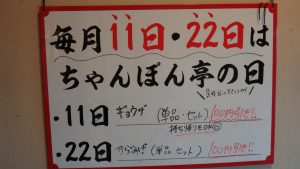 毎月11日・22日は
ちゃんぽん亭の日
・11日 ギョウザ (単品 セット) 100円引き!!
持ち帰りもOK
・22日 からあげ (単品 セット) 100円引き!!